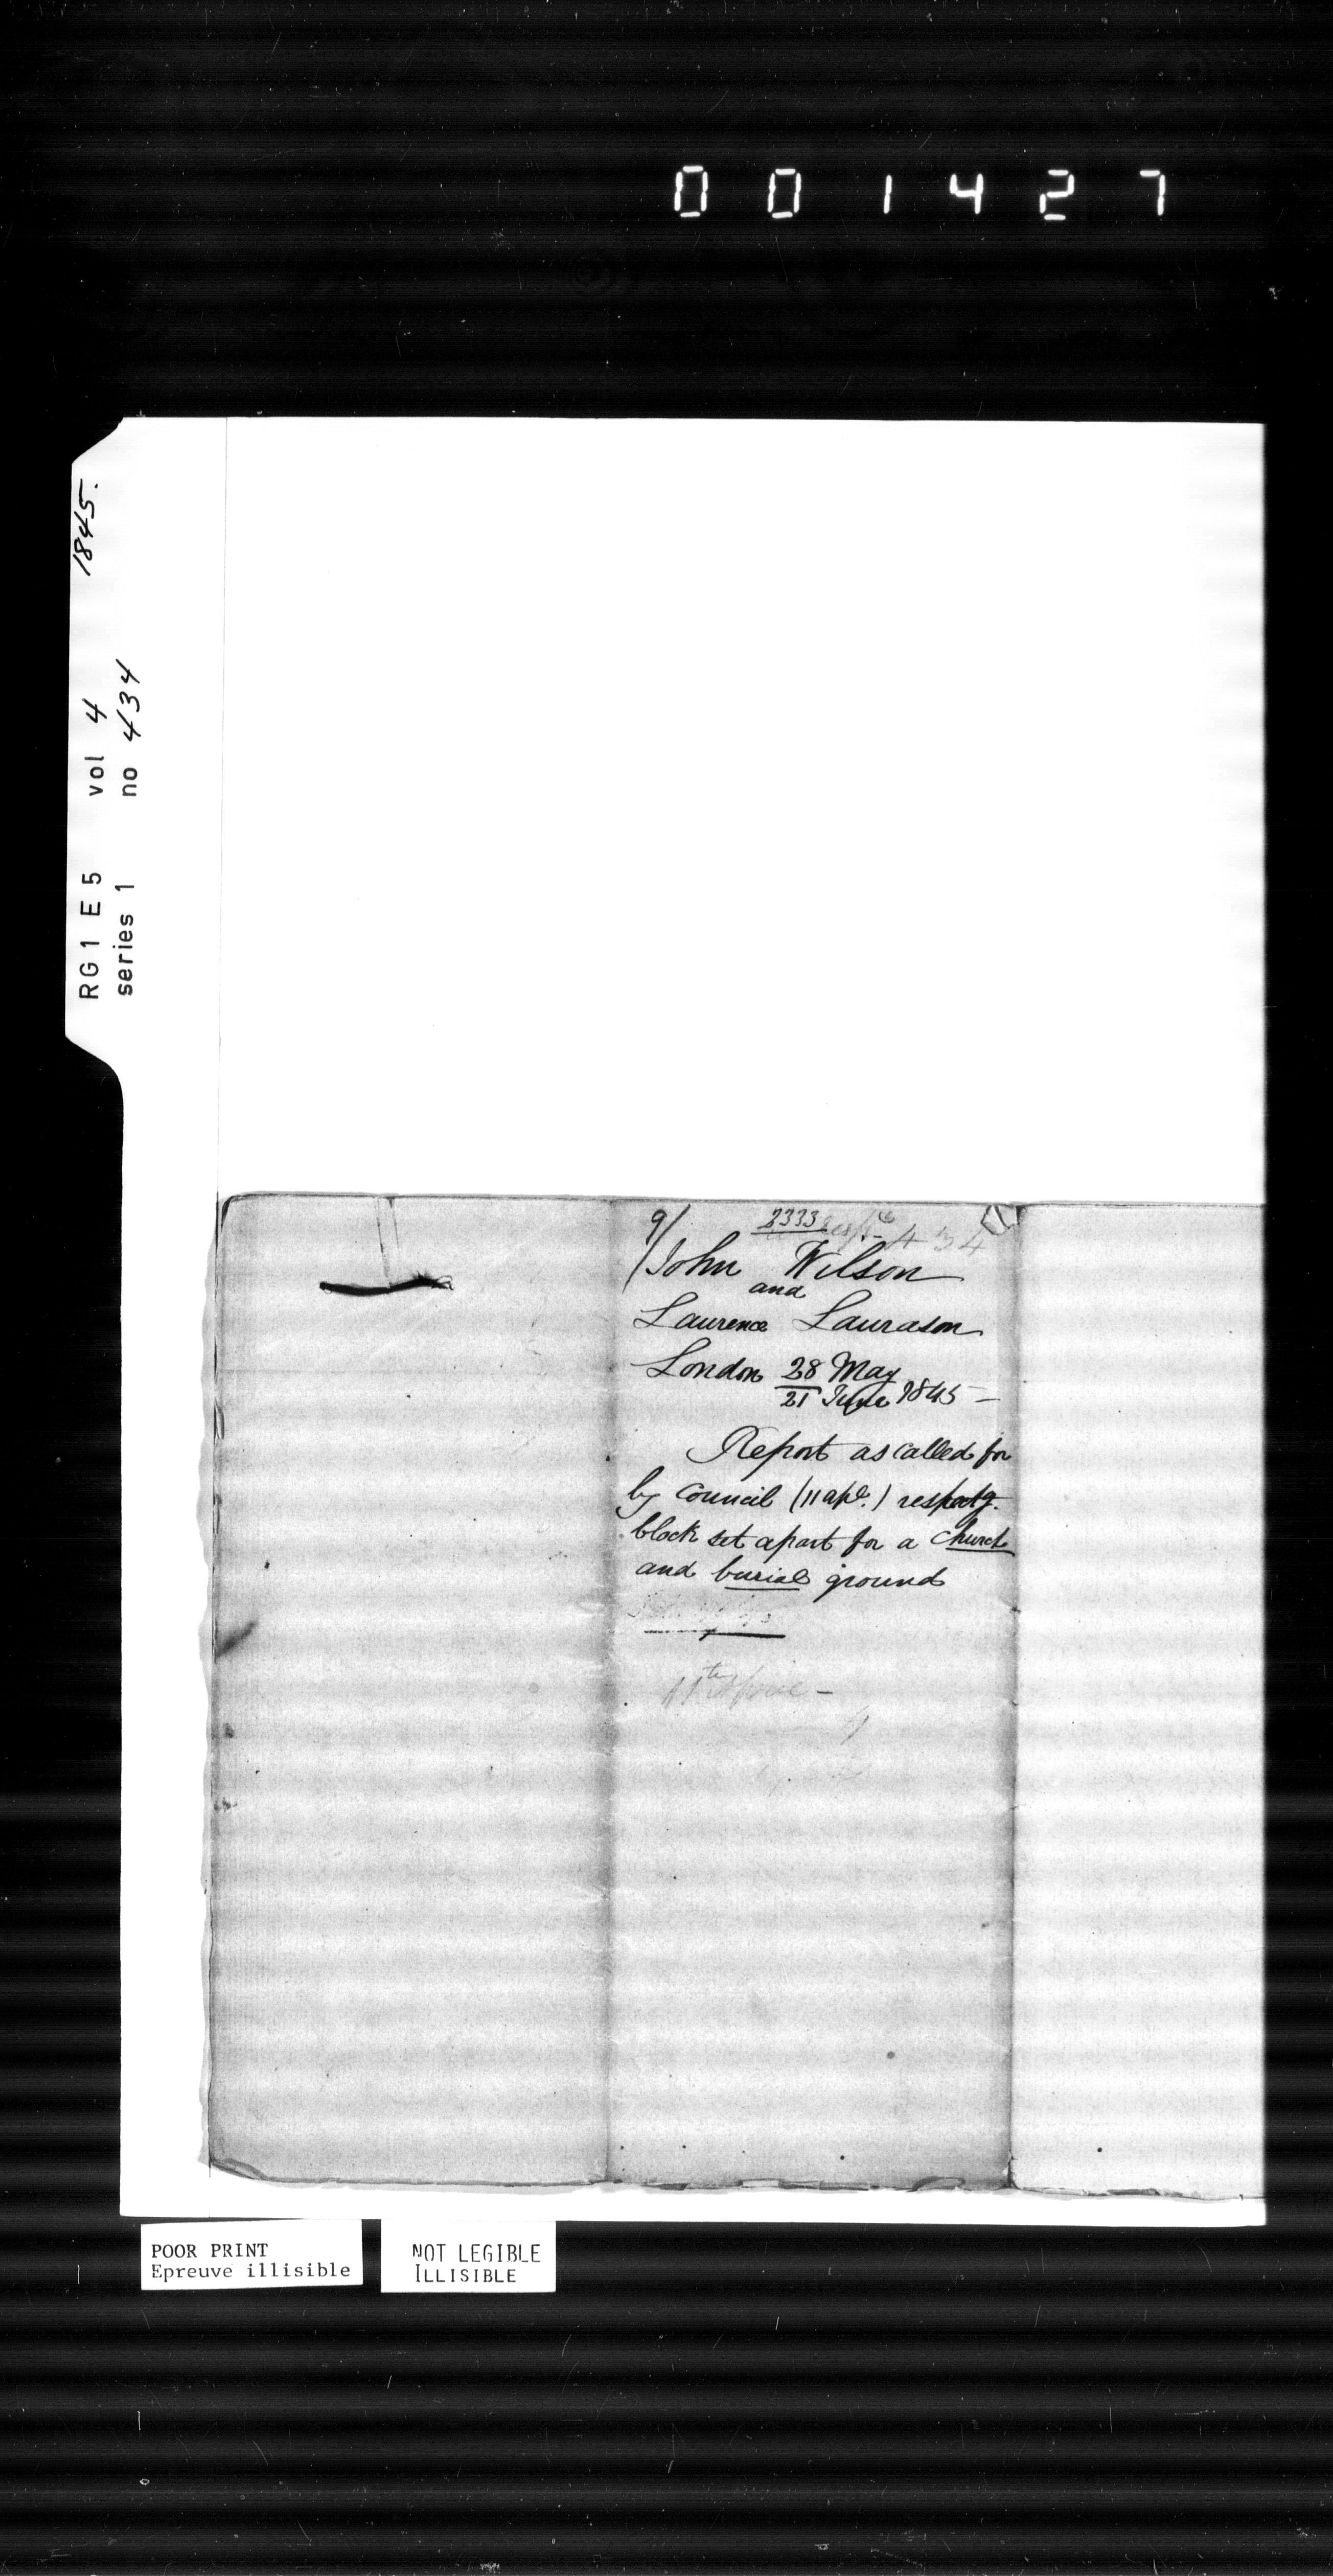 001427
1845.
RG1 E5 vol 4
series 1 no 434
9/ 2333 434
John Wilson
and
Laurence Laurason
London 28 May
21 June 1845 —
Report as called for
by Council (11 apl.) respectg.
block set apart for a church
and burial ground
11th
POOR PRINT
Epreuve illisible
NOT LEGIBLE
ILLISIBLE